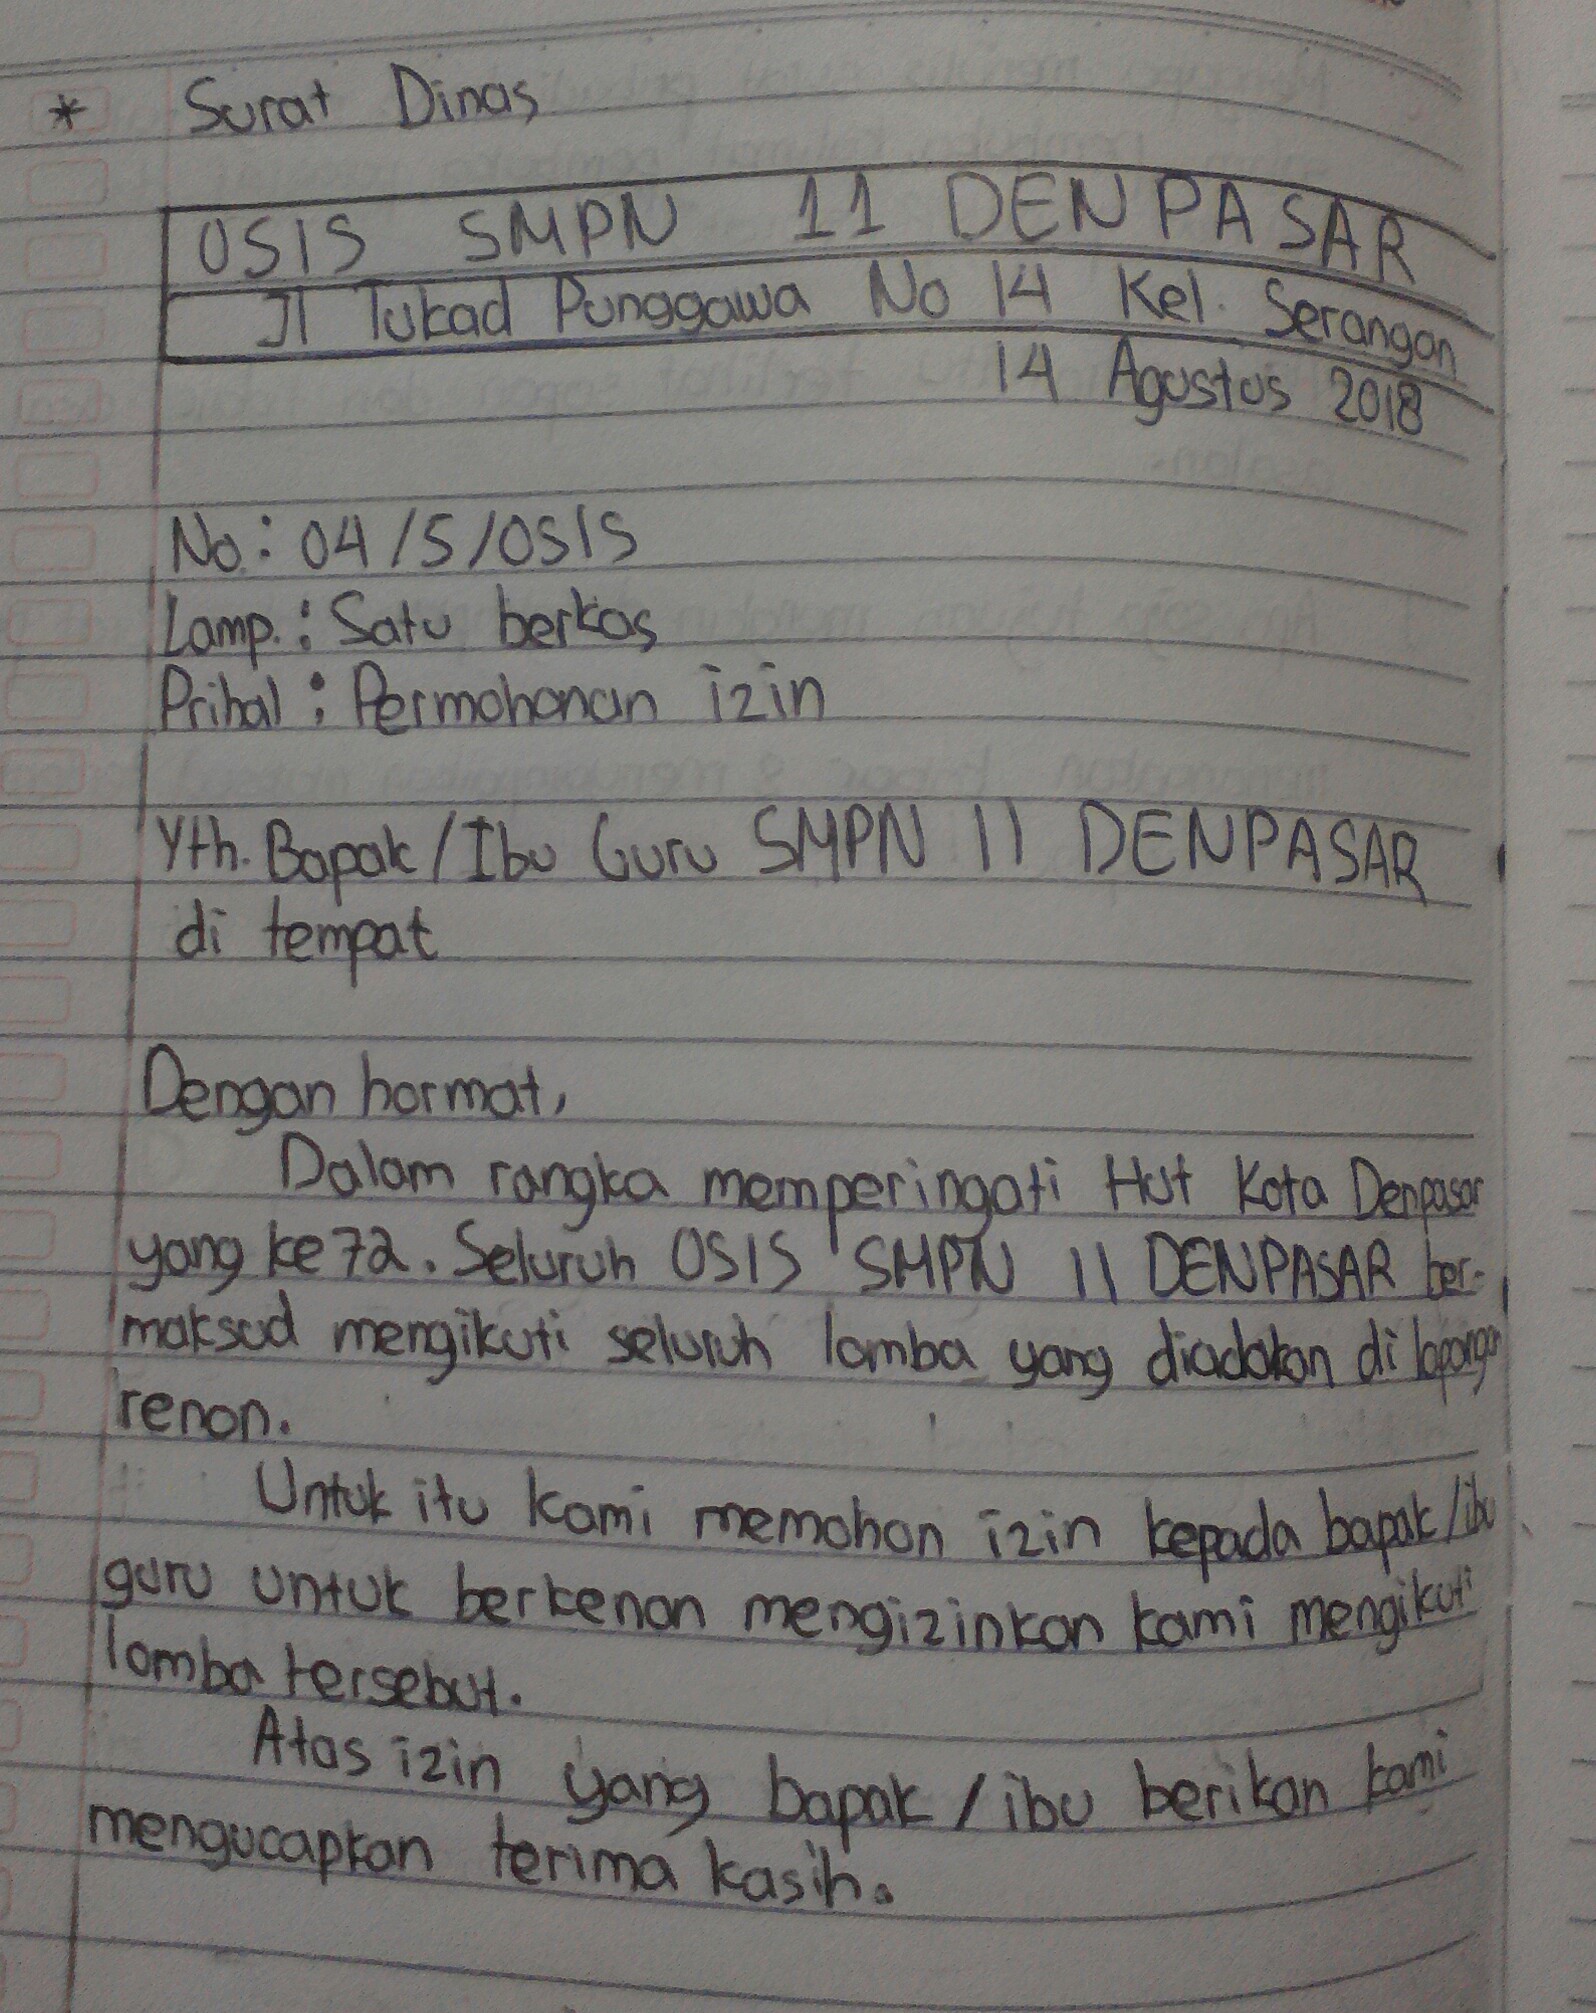 * Surat Dinas
OSIS SMPN 11 DENPASAR
Jl Tukad Punggawa No 14 Kel. Serangan
14 Agustus 2018
No: 04/5/OSIS
Lamp.: Satu berkas
Prihal: Permohonan izin
Yth. Bapak/Ibu Guru SMPN 11 DENPASAR
di tempat
Dengan hormat,
Dalam rangka memperingati Hut Kota Denpasar
yang ke 72. Seluruh OSIS SMPN 11 DENPASAR ber-
maksud mengikuti seluruh lomba yang diadakan di lapangan
renon.
Untuk itu kami memohon izin kepada bapak/ibu
guru untuk berkenan mengizinkan kami mengikuti
lomba tersebut.
Atas izin yang bapak/ibu berikan kami
mengucapkan terima kasih.